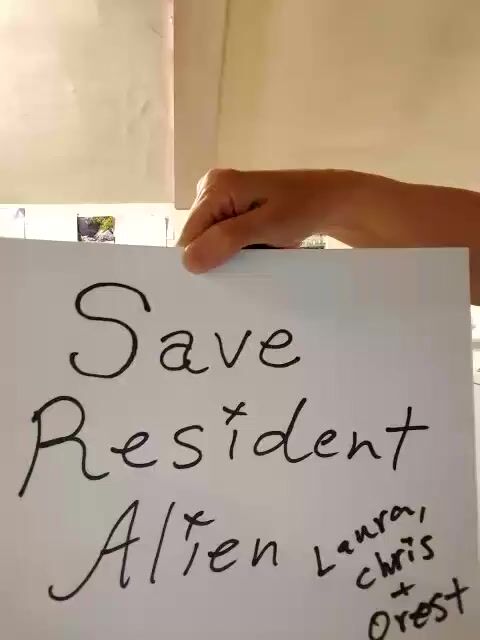 Save
Resident
Alien
Laura,
Chris
+
Orest